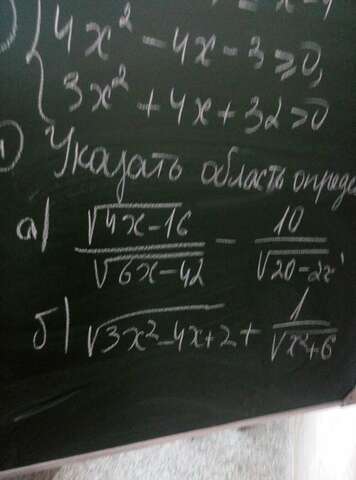 4x² - 4x - 3 ≥ 0,
3x² + 4x + 32 > 0
Указать область
а) √(4x-16) / √(6x-42) - 10 / √(20-2x)
б) √(3x²-4x+2) + 1 / √(x²+6)